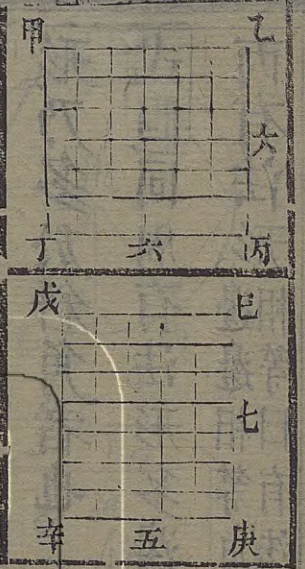 甲 乙
六
丁 六 丙
戊 己
七
辛 五 庚